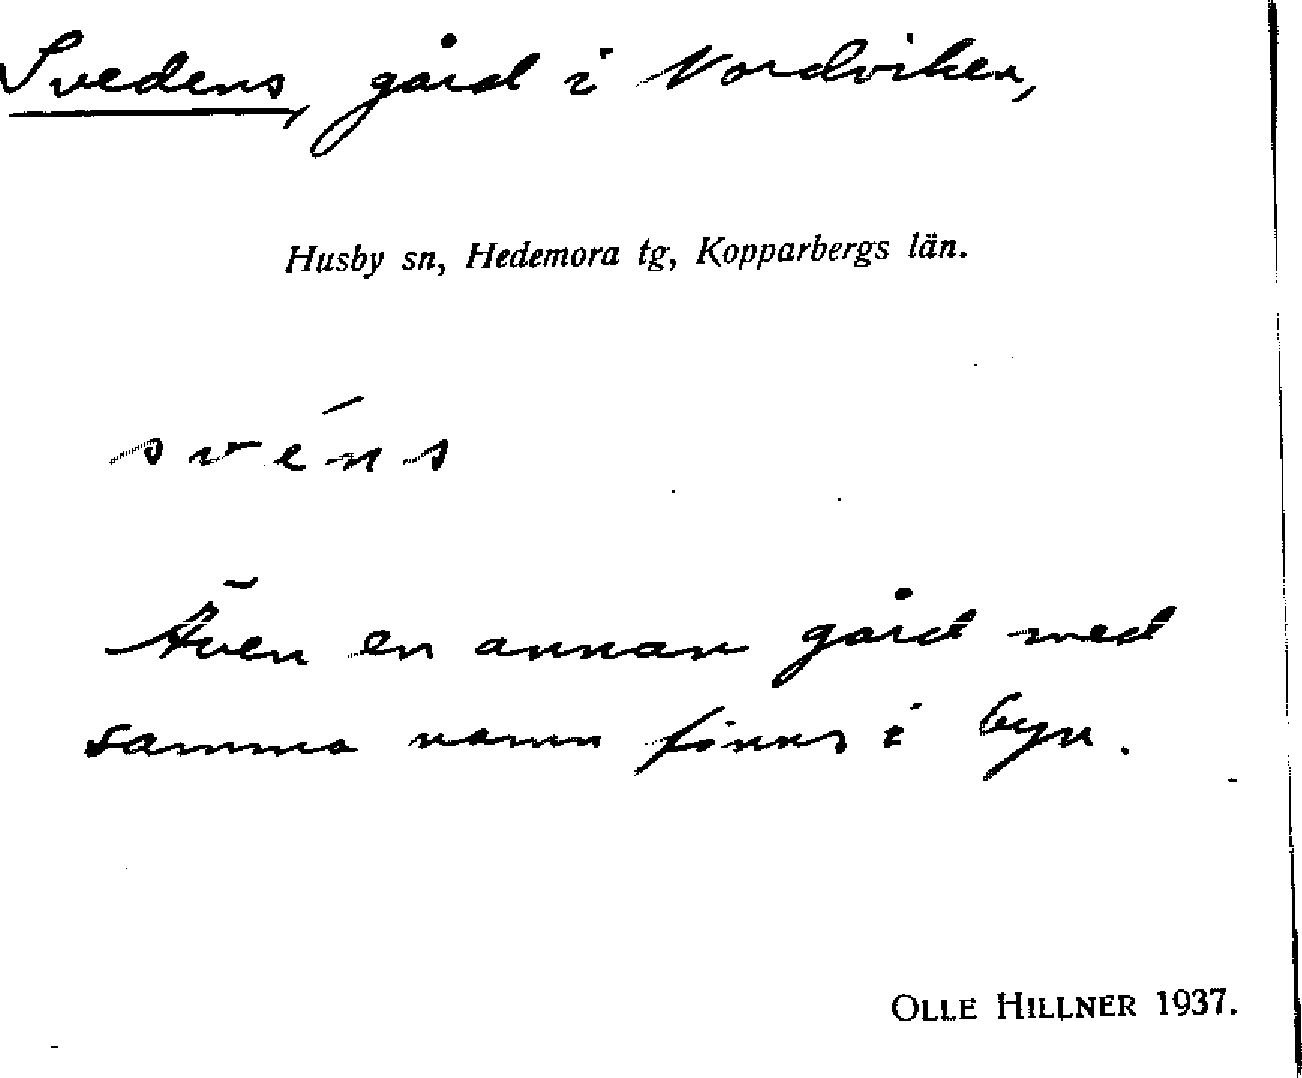 Svedens, gård i Nordviken,
Husby sn, Hedemora tg, Kopparbergs län.
svéns
Även en annan gård med
samma namn finns i byn.
OLLE HILLNER 1937.